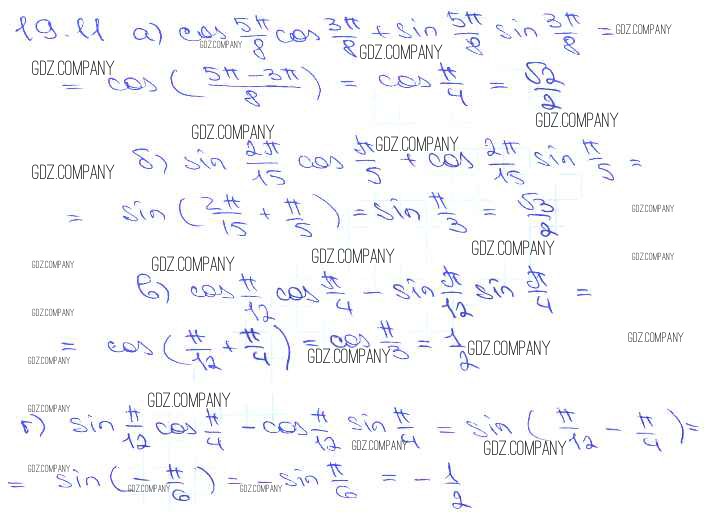 19.11 а) cos 5π/8 cos 3π/8 + sin 5π/8 sin 3π/8 = GDZ.COMPANY
GDZ.COMPANY GDZ.COMPANY
GDZ.COMPANY = cos ( (5π - 3π)/8 ) = cos π/4 = √2/2
GDZ.COMPANY GDZ.COMPANY
GDZ.COMPANY б) sin 2π/15 cos π/5 + cos 2π/15 sin π/5 = GDZ.COMPANY
= sin ( 2π/15 + π/5 ) = sin π/3 = √3/2 GDZ.COMPANY
GDZ.COMPANY GDZ.COMPANY GDZ.COMPANY GDZ.COMPANY GDZ.COMPANY
в) cos π/12 cos π/4 - sin π/12 sin π/4 =
GDZ.COMPANY
= cos ( π/12 + π/4 ) = cos π/3 = 1/2 GDZ.COMPANY
GDZ.COMPANY GDZ.COMPANY GDZ.COMPANY
GDZ.COMPANY GDZ.COMPANY
г) sin π/12 cos π/4 - cos π/12 sin π/4 = sin ( π/12 - π/4 ) =
GDZ.COMPANY GDZ.COMPANY
GDZ.COMPANY
= sin ( - π/6 ) = - sin π/6 = - 1/2
GDZ.COMPANY GDZ.COMPANY